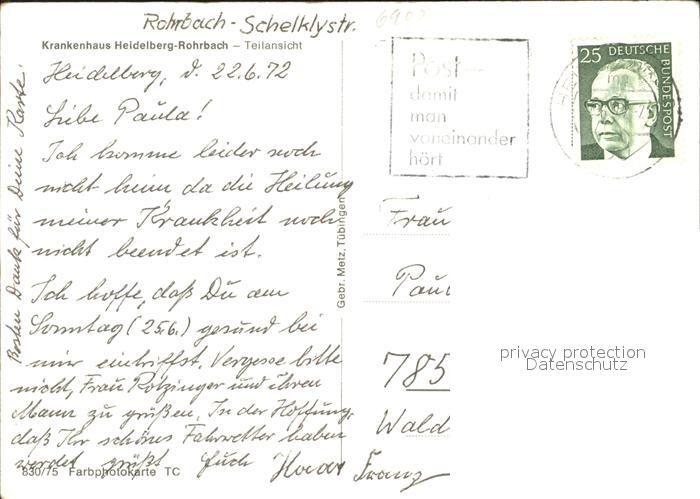 Rohrbach - Schelklystr.
Krankenhaus Heidelberg-Rohrbach – Teilansicht
Heidelberg, d. 22.6.72
Liebe Paula!
Ich komme leider noch
nicht heim da die Heilung
meiner Krankheit noch
nicht beendet ist.
Ich hoffe, daß Du am
Sonntag (25.6.) gesund bei
mir eintriffst. Vergesse bitte
nicht, Frau Rötzinger und ihren
Mann zu grüßen. In der Hoffnung,
daß Ihr schönes Fahrwetter haben
werdet grüßt Euch
Franz
Besten Dank für Deine Karte.
830/75 Farbphotokarte TC
Gebr. Metz, Tübingen
Post –
damit
man
voneinander
hört
25 DEUTSCHE
BUNDESPOST
Frau
Pau
785
Wald
privacy protection
Datenschutz